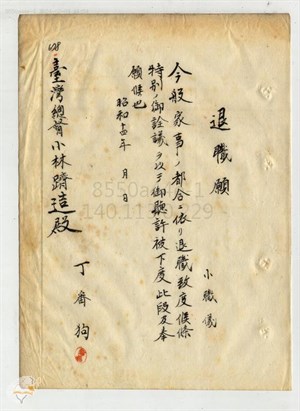 退職願
小職儀
今般家事ノ都合ニ依リ退職致度候條
特別ノ御詮議ヲ以テ御聽許被下度此段及奉
願候也
昭和 年 月 日
丁 狗
臺灣總督小林躋造殿